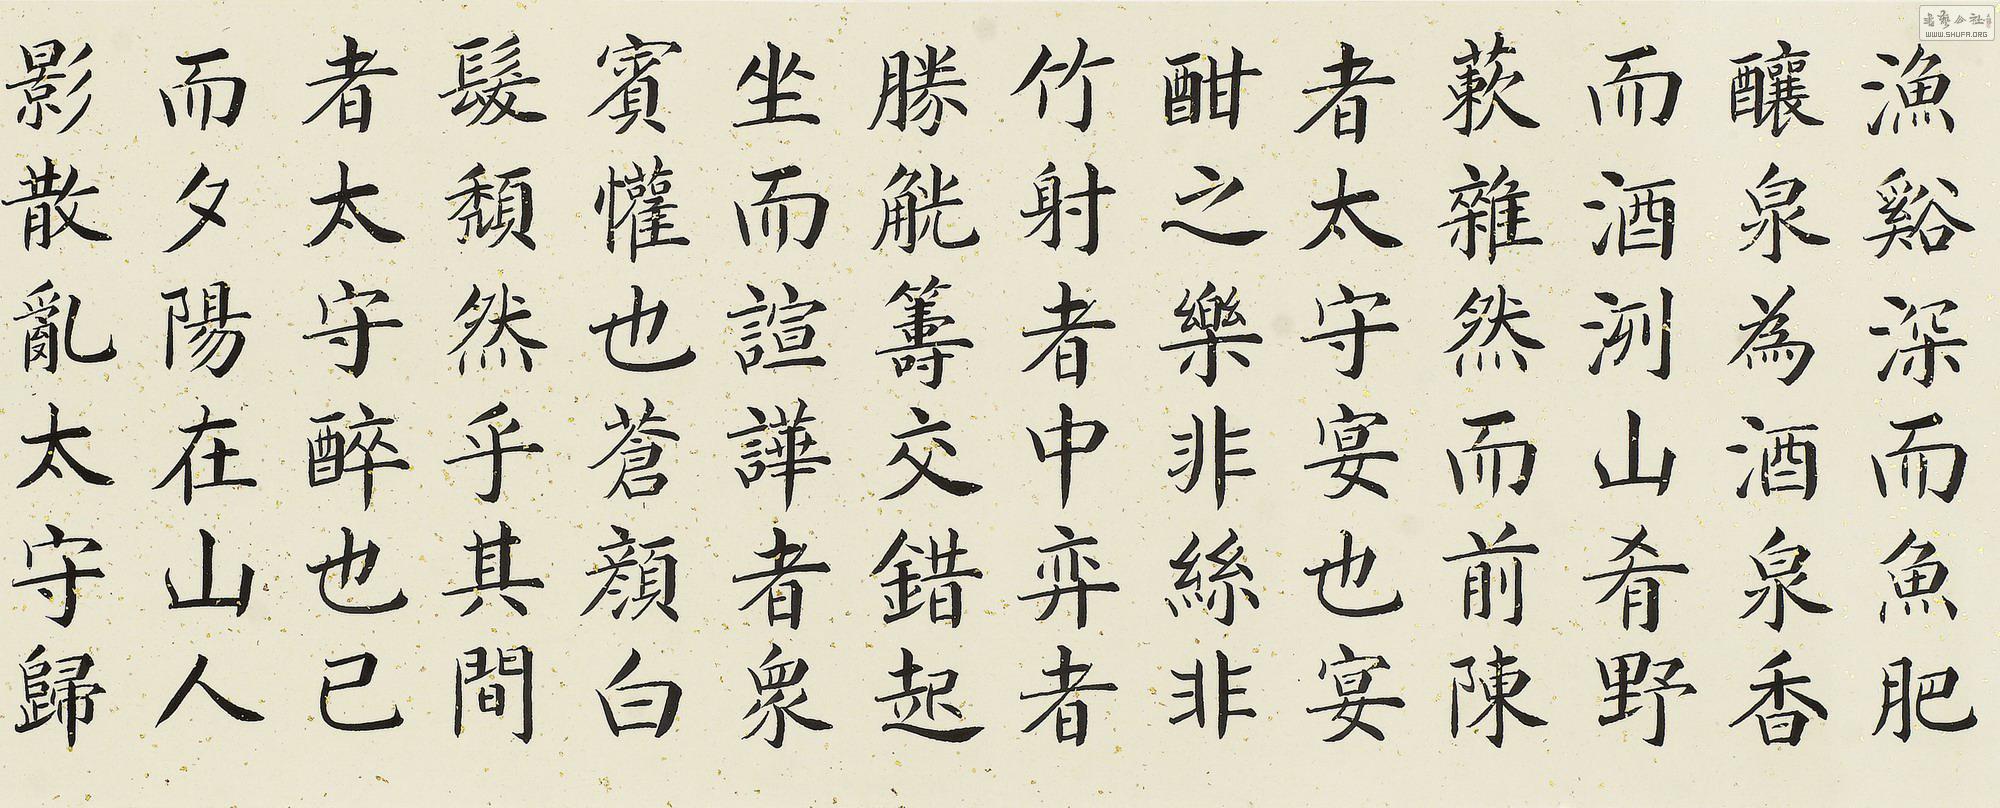 漁谿深而魚肥
釀泉為酒泉香
而酒洌山肴野
蔌雜然而前陳
者太守宴也宴
酣之樂非絲非
竹射者中弈者
勝觥籌交錯起
坐而諠譁者衆
賓懽也蒼顏白
髮頹然乎其間
者太守醉也已
而夕陽在山人
影散亂太守歸
WWW.SHUFA.ORG